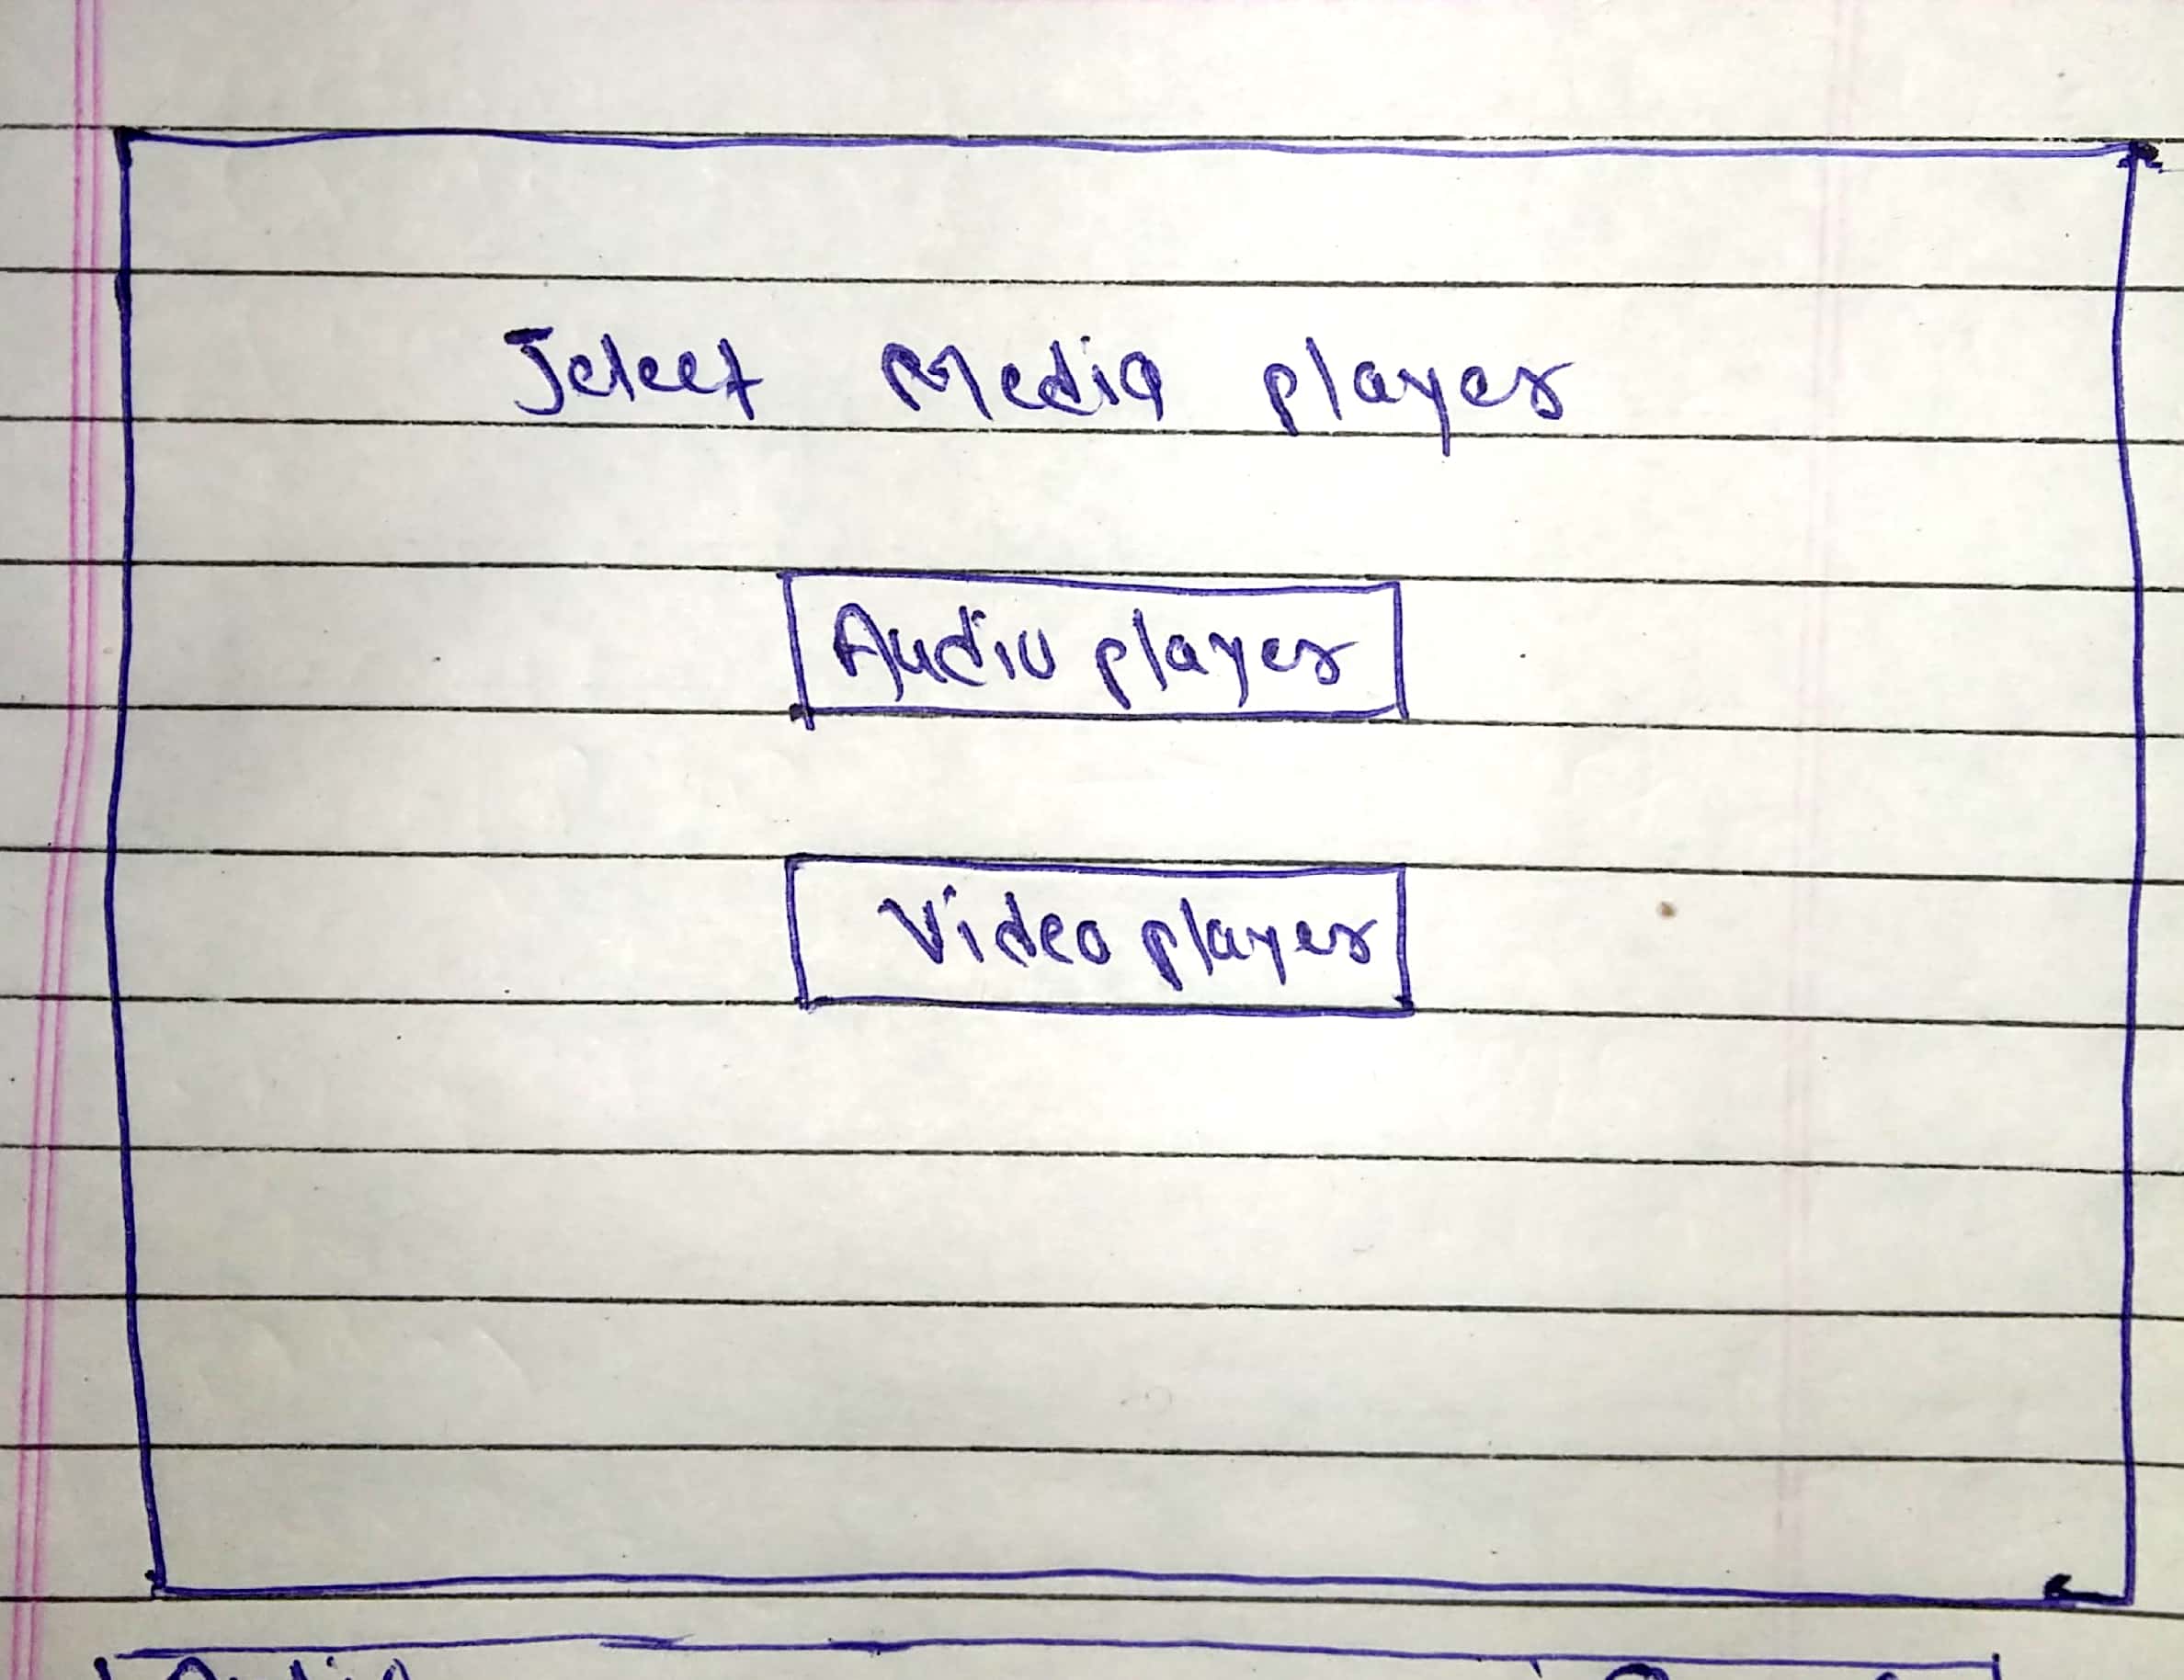 Select Media player
Audio player
Video player
Audio